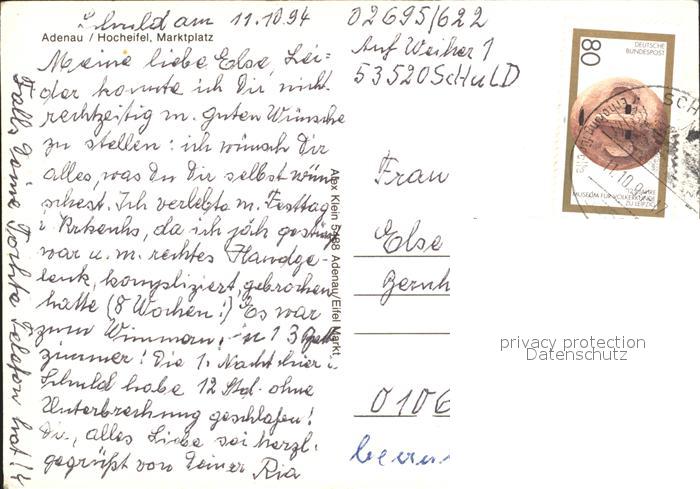 Schuld am 11.10.94
Adenau / Hocheifel, Marktplatz
Meine liebe Else, Lei-
der konnte ich Dir nicht
rechtzeitig m. guten Wünsche
zu stellen: ich wünsch Dir
alles, was Du Dir selbst wün
schest. Ich verlebte m. Festtag
i. Krkenhs, da ich jäh gestürzt
war u. m. rechtes Handge-
lenk, kompliziert, gebrochen
hatte (8 Wochen!) Es war
zum Wimmern, in 1 3
zimmer! Die 1. Nacht hier i.
Schuld habe 12 Std. ohne
Unterbrechung geschlafen!
Dir, alles Liebe sei herzl.
gegrüßt von Deiner Ria
Falls Deine Tochter Telefon hat!
Alex Klein 5488 Adenau/Eifel Markt
02695/622
Auf Weiher 1
53520 Schuld
Frau
Else
Gernh
0106
80
DEUTSCHE
BUNDESPOST
125 JAHRE
MUSEUM FÜR VÖLKERKUNDE
ZU LEIPZIG
SCH
11.10.94
privacy protection
Datenschutz